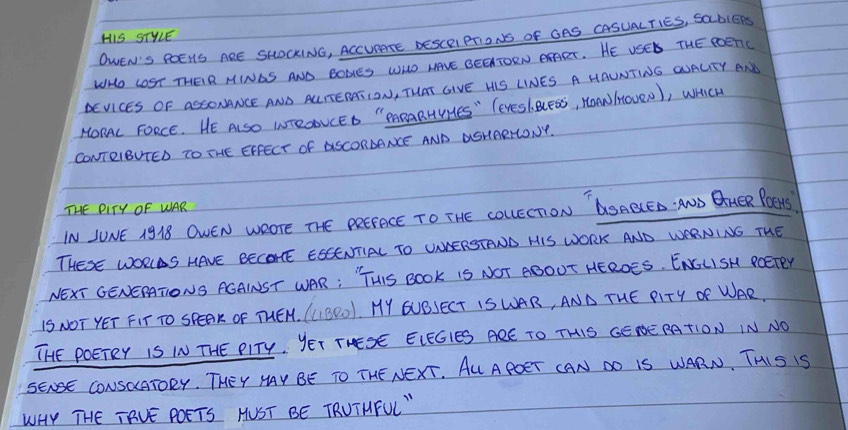 HIS STYLE
OWEN'S POEMS ARE SHOCKING, ACCURATE DESCRIPTIONS OF GAS CASUALTIES, SOLDIERS
WHO LOST THEIR MINDS AND BODIES WHO HAVE BEEN TORN APART. HE USED THE POETIC
DEVICES OF ASSONANCE AND ALLITERATION, THAT GIVE HIS LINES A HAUNTING QUALITY AND
MORAL FORCE. HE ALSO INTRODUCED "PARARHYMES" (EYES/BLESS, MOAN/MOURN), WHICH
CONTRIBUTED TO THE EFFECT OF DISCORDANCE AND DISHARMONY.
THE PITY OF WAR
IN JUNE 1918 OWEN WROTE THE PREFACE TO THE COLLECTION "DISABLED AND OTHER POEMS".
THESE WORLDS HAVE BECOME ESSENTIAL TO UNDERSTAND HIS WORK AND WARNING THE
NEXT GENERATIONS AGAINST WAR: "THIS BOOK IS NOT ABOUT HEROES. ENGLISH POETRY
IS NOT YET FIT TO SPEAK OF THEM. (LIBRO). MY SUBJECT IS WAR, AND THE PITY OF WAR.
THE POETRY IS IN THE PITY. YET THESE ELEGIES ARE TO THIS GENERATION IN NO
SENSE CONSOLATORY. THEY MAY BE TO THE NEXT. ALL A POET CAN DO IS WARN. THIS IS
WHY THE TRUE POETS MUST BE TRUTHFUL"